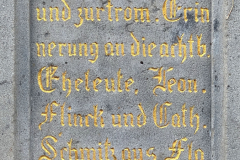 und zur from; Erin
nerung an die achtb.
Eheleute, Leon.
Flinck und Cath.
Schmitz aus Flo